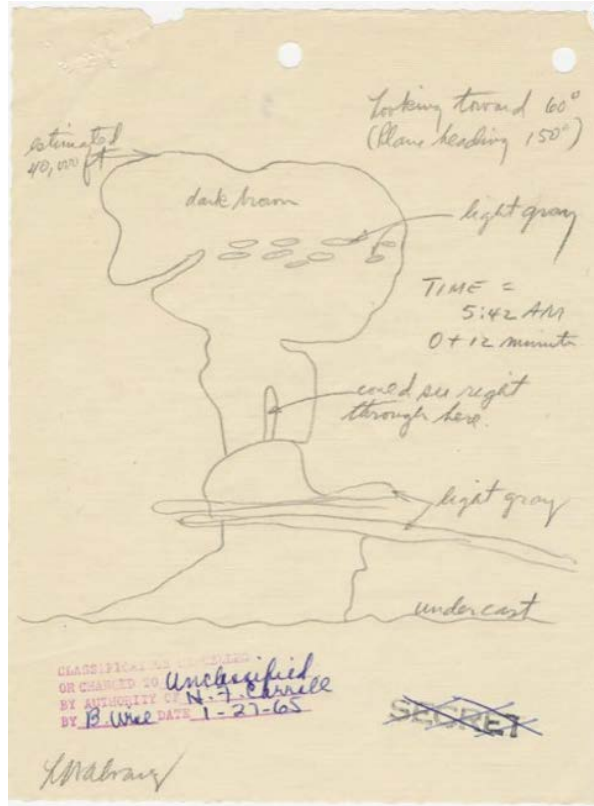 Looking toward 60°
(Plane heading 150°)
estimated
40,000 ft
dark brown
light gray
TIME =
5:42 AM
0 + 12 minutes
could see right
through here.
light gray
undercast
CLASSIFICATION CANCELLED
OR CHANGED TO Unclassified
BY AUTHORITY OF N. F. Carroll
BY DATE 1-27-65
SECRET